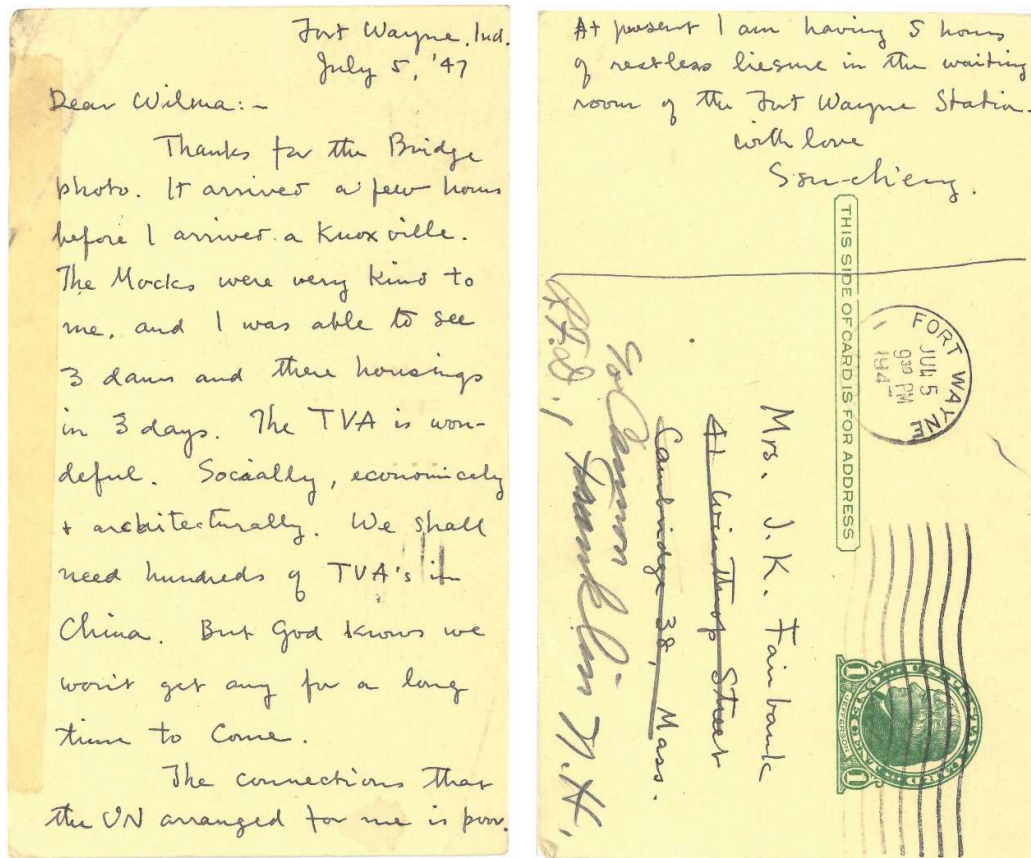 Fort Wayne, Ind.
July 5, '47
Dear Wilma:-
Thanks for the Bridge
photo. It arrived a few hours
before I arrived a Knoxville.
The Mocks were very kind to
me, and I was able to see
3 dams and there housings
in 3 days. The TVA is won-
deful. Socially, economicely
+ architecturally. We shall
need hundreds of TVA's in
China. But God knows we
won't get any for a long
time to come.
The connections that
the UN arranged for me is poor.
At present I am having 5 hours
of restless liesure in the waiting
room of the Fort Wayne Station.
with love
Ssu-ch'eng.
THIS SIDE OF CARD IS FOR ADDRESS
FORT WAYNE
JUL 5
9 30 PM
194
1
Mrs. J. K. Fairbank
41 Winthrop Street
Cambridge 38, Mass.
Cannon
R.F.D. 1 Franklin N.H.
1 JEFFERSON 1